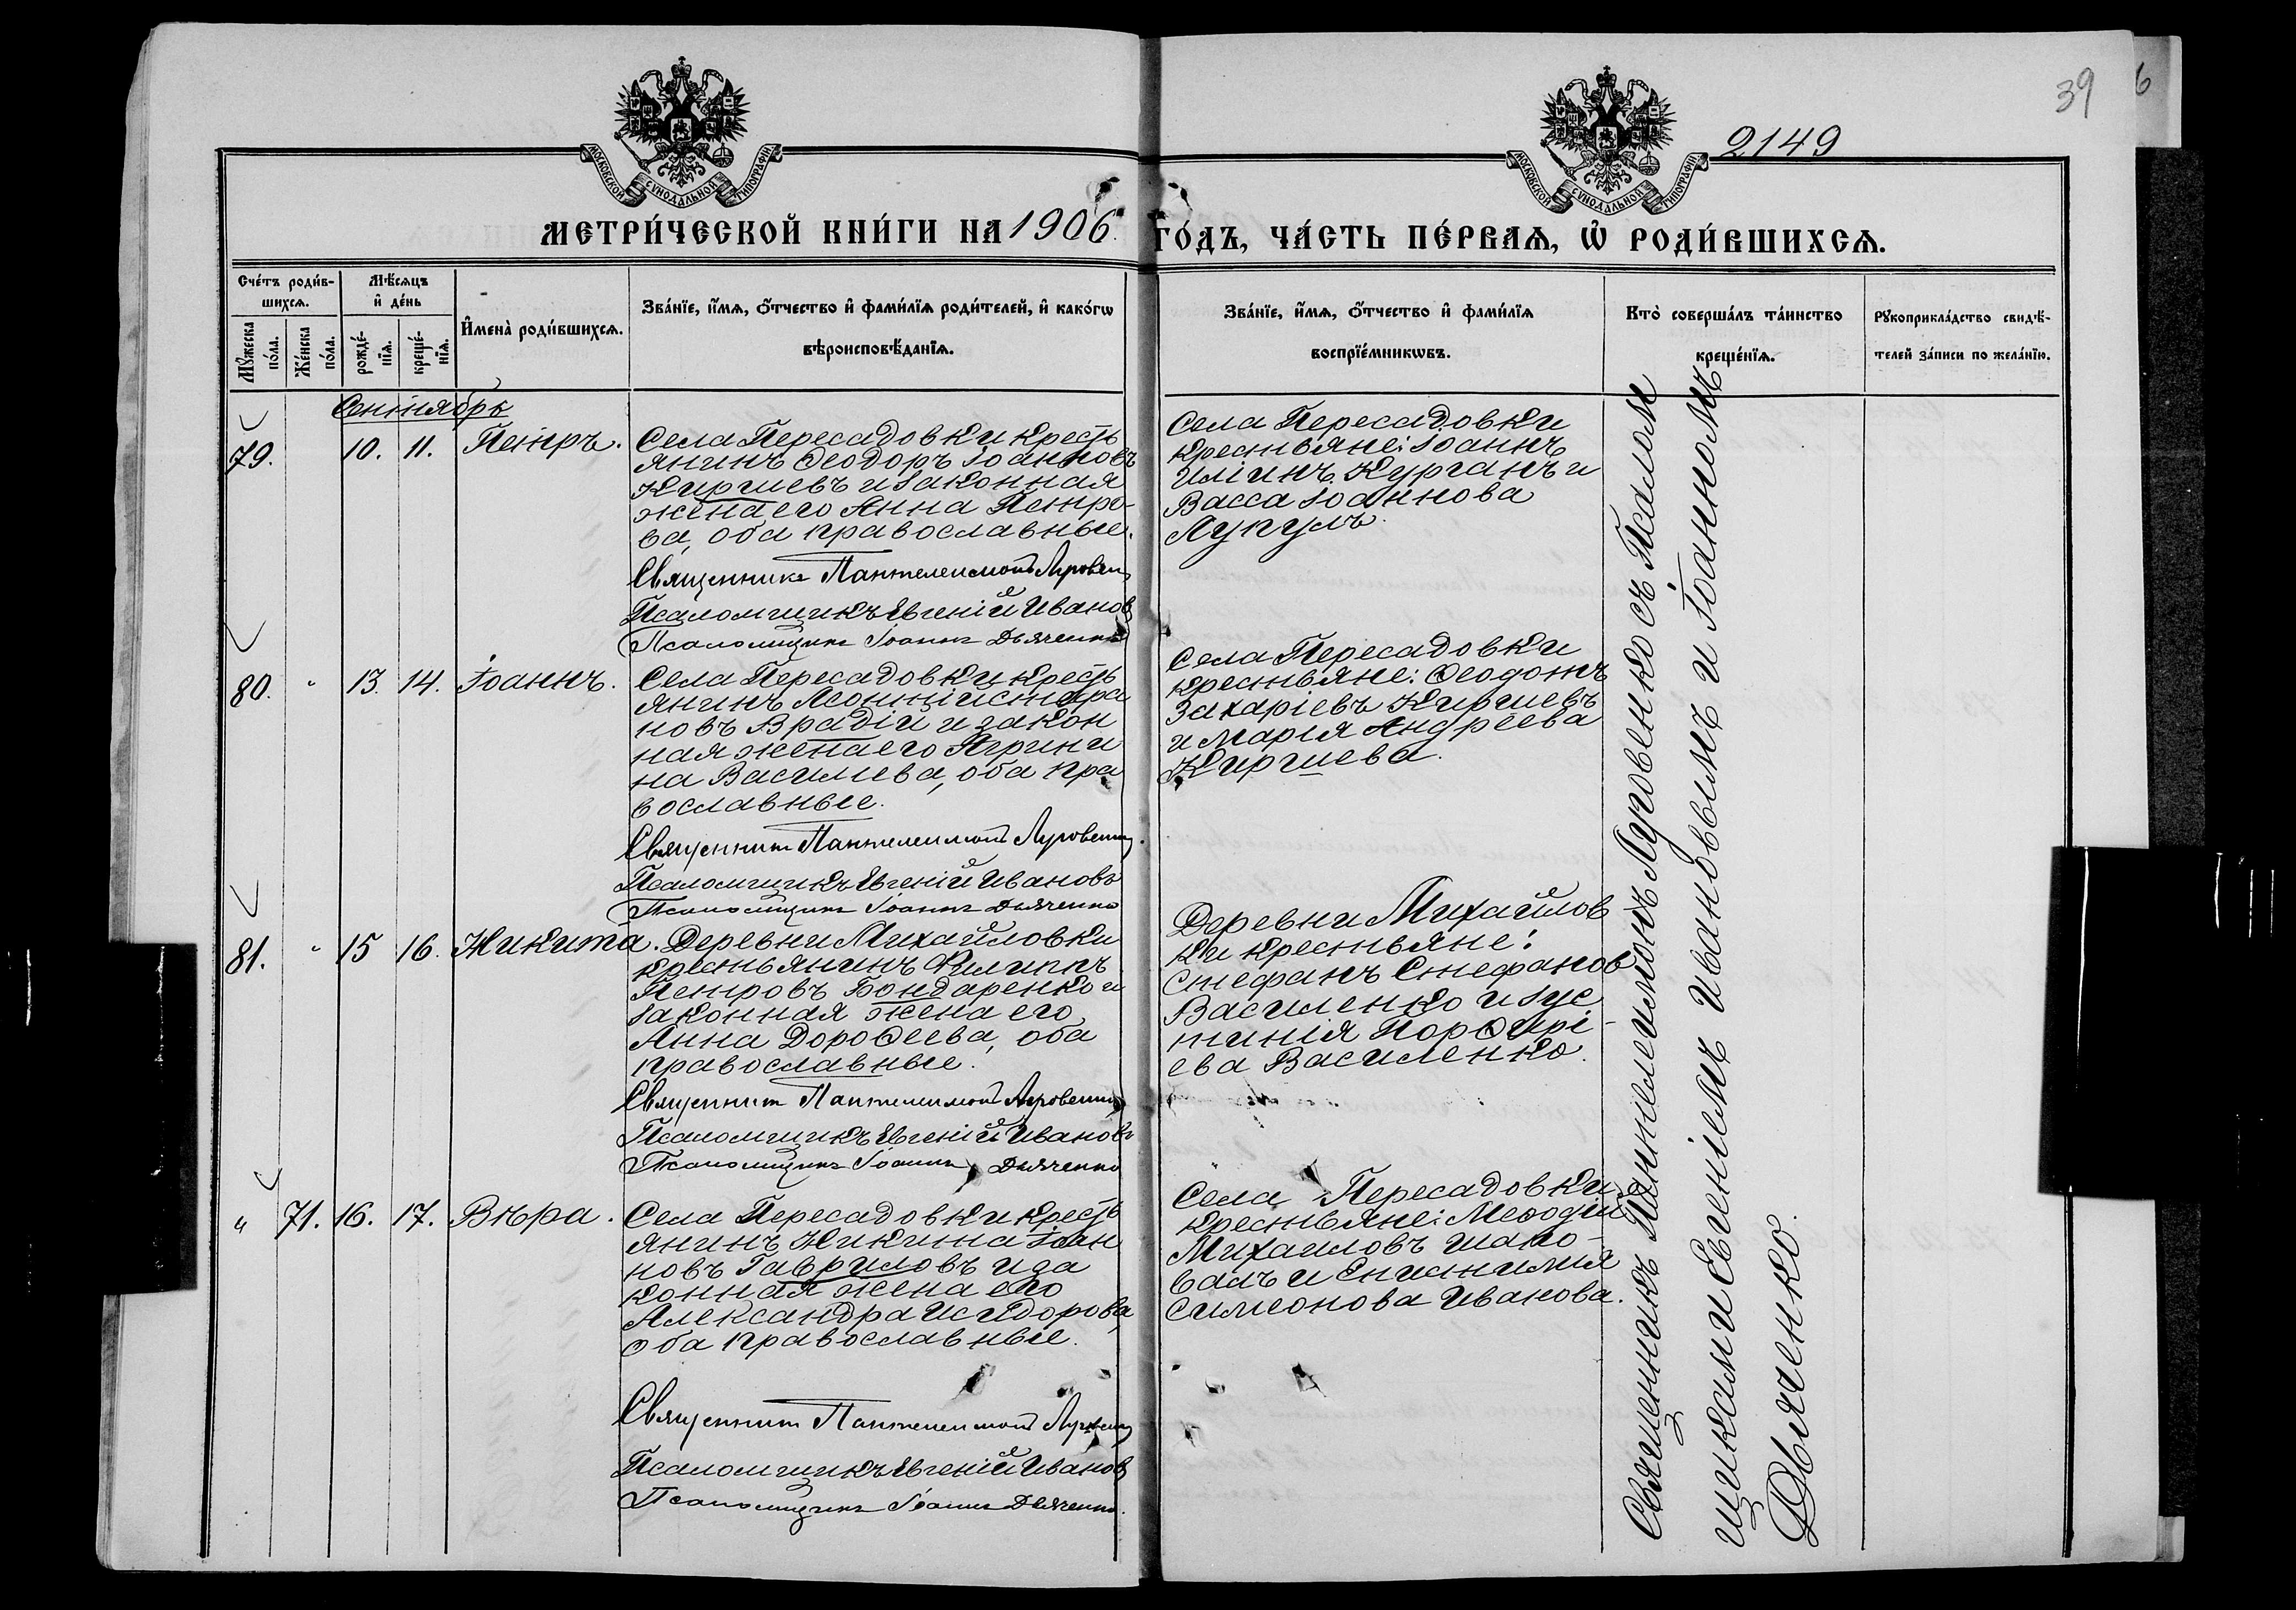 39
6
2149
МОСКОВСКОЙ СѴНОДАЛЬНОЙ ТИПОГРАФІИ
МОСКОВСКОЙ СѴНОДАЛЬНОЙ ТИПОГРАФІИ
МЕТРИ́ЧЕСКОЙ КНИ́ГИ НА 1906 ГО́ДЪ, ЧА́СТЬ ПЕ́РВАѦ, Ѡ҆ РОДИ́ВШИХСѦ.
Сче́тъ роди́в-
шихсѧ.
Мꙋ́жеска по́ла.
Же́нска по́ла.
Мѣ́сѧцъ
и҆ де́нь
рожде́-
нїѧ.
креще́-
нїѧ.
И҆мена̀ роди́вшихсѧ.
Зва́нїе, и҆́мѧ, ѻ҆́тчество и҆ фами́лїѧ роди́телей, и҆ како́гѡ
вѣроисповѣ́данїѧ.
Зва́нїе, и҆́мѧ, ѻ҆́тчество и҆ фами́лїѧ
воспрїе́мникѡвъ.
Кто̀ соверша́лъ та́инство
креще́нїѧ.
Рꙋкоприкла́дство свидѣ́-
телей за́писи по жела́нїю.
Сентябрь
79. 10. 11. Петръ.
Села Пересадовки кресть
янинъ Ѳеодоръ Іоанновъ
Киргиевъ и законная
жена его Анна Петро-
ва, оба православные.
Священникъ Пантелеимонъ Луговен
Псаломщикъ Евгеній Иванов
Псаломщикъ Іоаннъ Дьяченко
Села Пересадовки
крестьяне: Іоаннъ
Иліинъ Курганъ и
Васса Іоаннова
Лупулъ.
80. " 13. 14. Іоаннъ.
Села Пересадовки кресть
янинъ Леонтій Стефа
новъ Врадій и закон
ная жена его Агрипи
на Василиева, оба пра
вославные.
Священникъ Пантелеимонъ Луговенко
Псаломщикъ Евгеній Ивановъ
Псаломщикъ Іоаннъ Дьяченко
Села Пересадовки
крестьяне: Ѳеодотъ
Захаріевъ Киргиевъ
и Марія Андреева
Киргиева.
81. " 15 16. Никита.
Деревни Михайловки
крестьянинъ Филиппъ
Петровъ Бондаренко и
законная жена его
Анна Дороѳеева, оба
православные.
Священникъ Пантелеимонъ Луговенко
Псаломщикъ Евгеній Иванов
Псаломщикъ Іоаннъ Дьяченко
Деревни Михайлов
ки крестьяне:
Стефанъ Стефанов
Василенко и Іус
тинія Порфирі-
ева Василенко.
" 71. 16. 17. Вѣра.
Села Пересадовки кресть
янинъ Никита Іоан
новъ Гавриловъ и за
конная жена его
Александра Исидорова,
оба православные.
Священникъ Пантелеимонъ Луговенко
Псаломщикъ Евгеній Иванов
Псаломщикъ Іоаннъ Дьяченко.
Села Пересадовки
крестьяне: Меѳодій
Михаиловъ Шапо-
валъ и
Симеонова Иванова.
Священникъ Пантелеимонъ Луговенко съ Псалом
щиками Евгеніемъ Ивановымъ и Іоанномъ
Дьяченко.